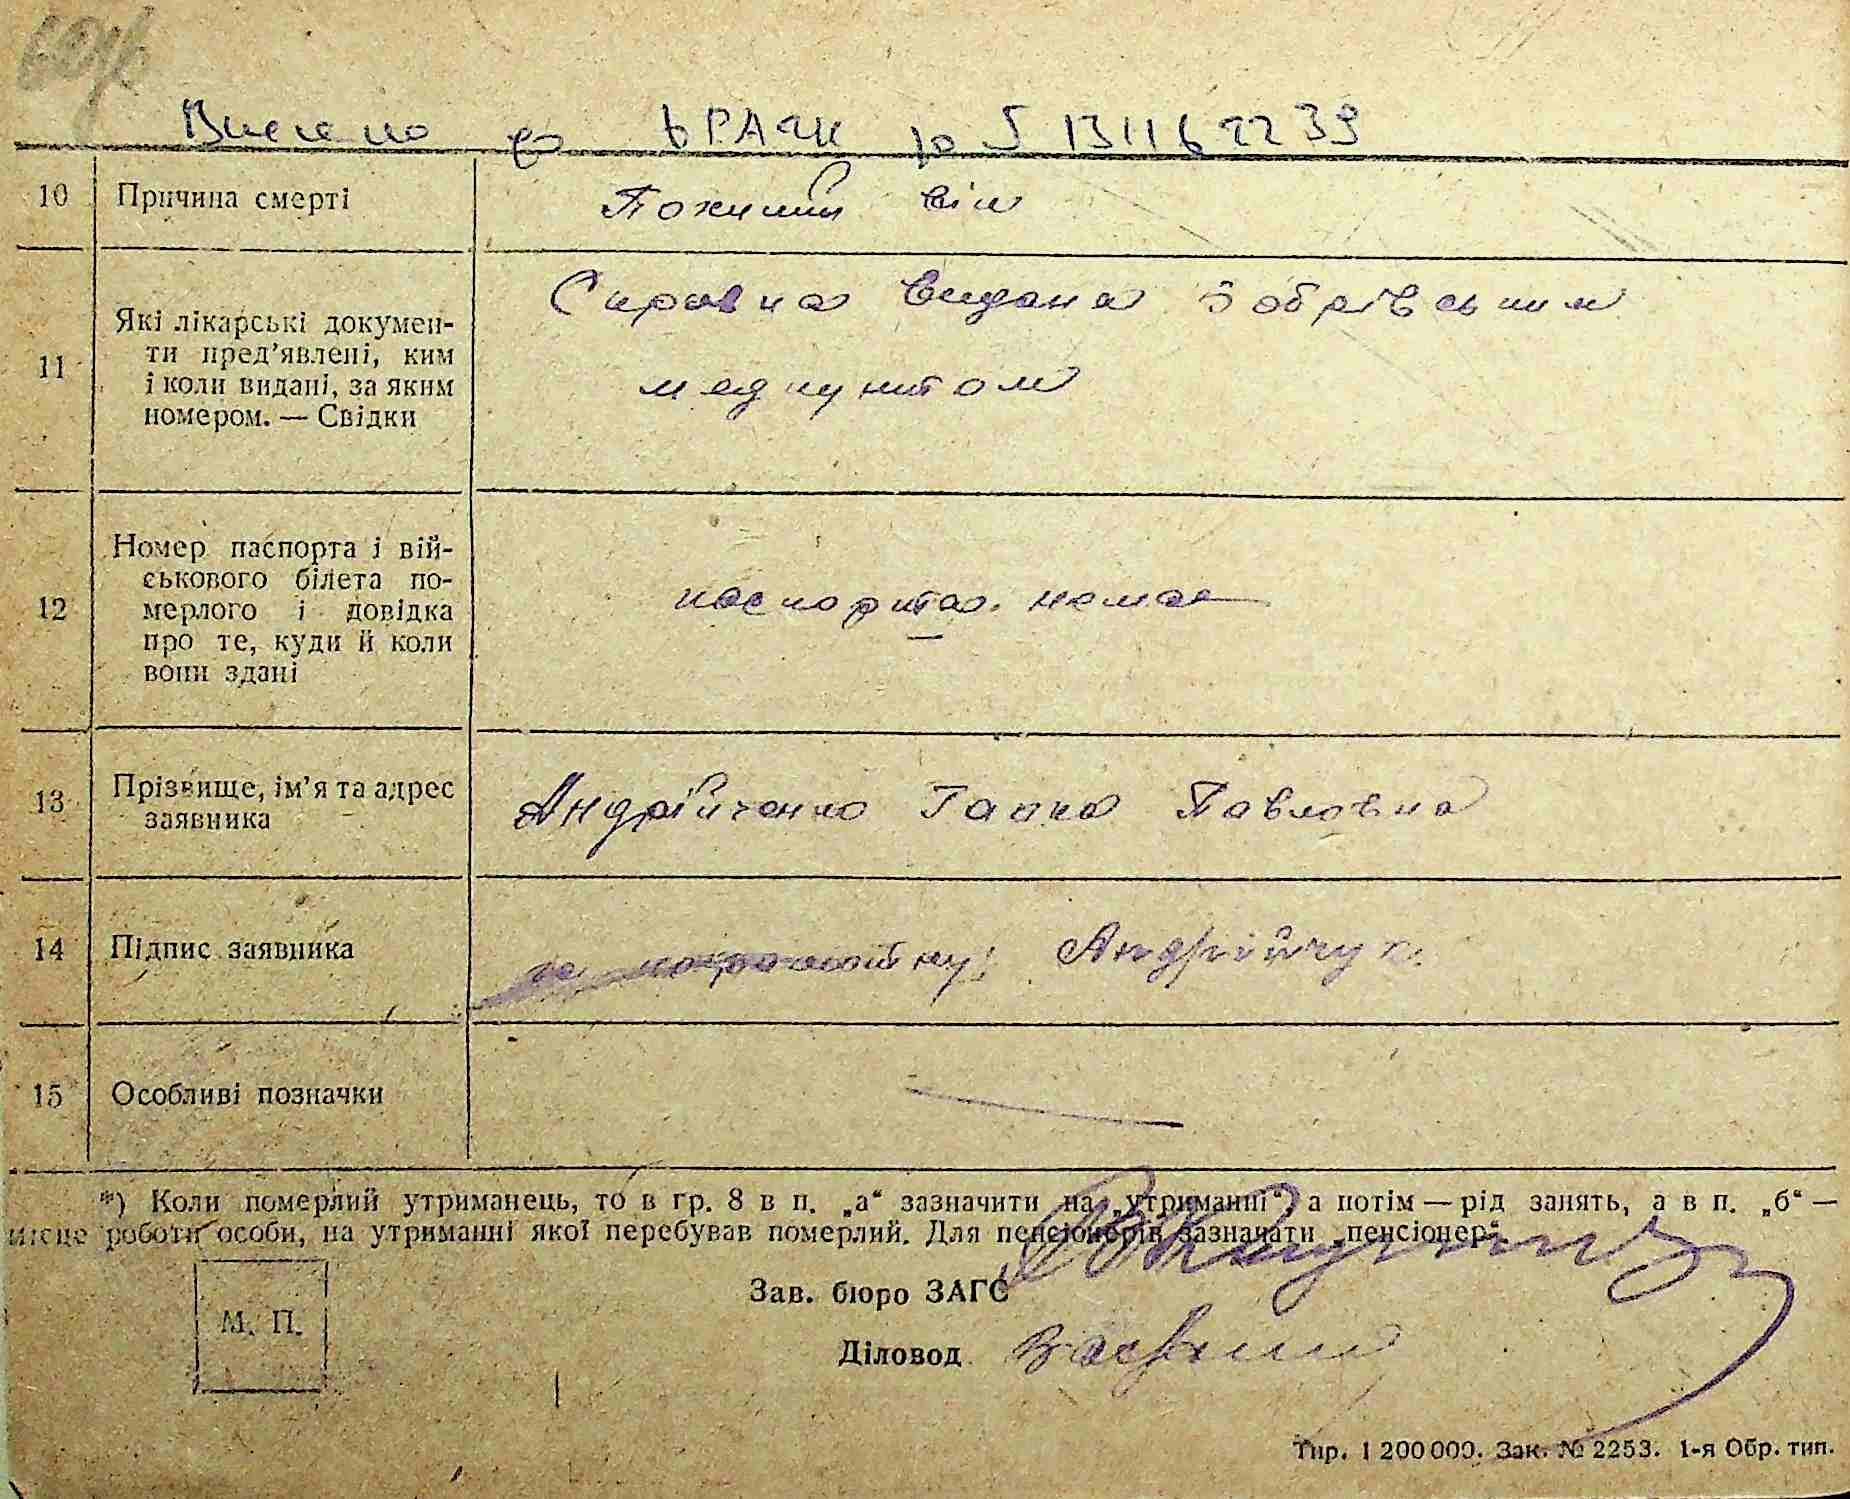 Внесено до ДРАЦС
10 Причина смерті Похилий вік
11 Які лікарські докумен-
ти пред'явлені, ким
і коли видані, за яким
номером. — Свідки
Справка видана Бобрівським
медпунктом
12 Номер паспорта і вій-
ськового білета по-
мерлого і довідка
про те, куди й коли
вони здані
паспорта немає
13 Прізвище, ім'я та адрес
заявника
Андрійченко Гапка Павловна
14 Підпис заявника за неграмотну: Андрійчук
15 Особливі позначки
*) Коли померлий утриманець, то в гр. 8 в п. „а“ зазначити на „утриманні“ а потім — рід занять, а в п. „б“ —
місце роботи особи, на утриманні якої перебував померлий. Для пенсіонерів зазначати „пенсіонер“.
Зав. бюро ЗАГС
М. П.
Діловод
Тир. 1 200 000. Зак. № 2253. 1-я Обр. тип.